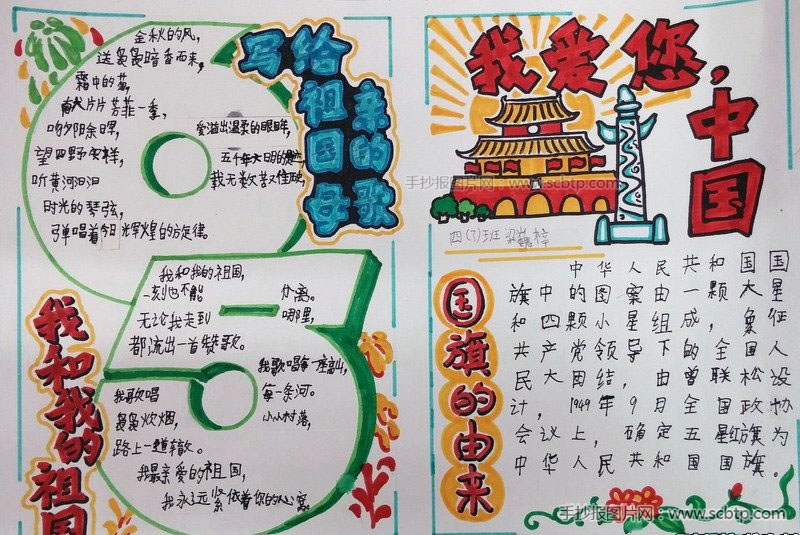 写给
祖国母
亲的歌
金秋的风,
送袅袅暗香而来,
霜中的菊,
片片芳菲一季,
吻夕阳余晖,
望四野
听黄河汨汨
时光的琴弦,
弹唱着今日光辉煌的旋律。
爱溢出温柔的眼眸,
五千年
载无数苦
我和我的祖国
我和我的祖国,
一刻也不能分离。
无论我走到哪里,
都流出一首赞歌。
我歌唱每一座高山,
我歌唱每一条河。
袅袅炊烟,小小村落,
路上一道辙。
我最亲爱的祖国,
我永远紧依着你的心窝
我爱您,
中国
手抄报图片网:www.scbtp.com
四(7)班
国旗的由来
中华人民共和国国
旗中的图案由一颗大星
和四颗小星组成,象征
共产党领导下的全国人
民大团结,由曾联松设
计,1949年9月全国政协
会议上,确定五星红旗为
中华人民共和国国旗。
手抄报图片网:www.scbtp.com